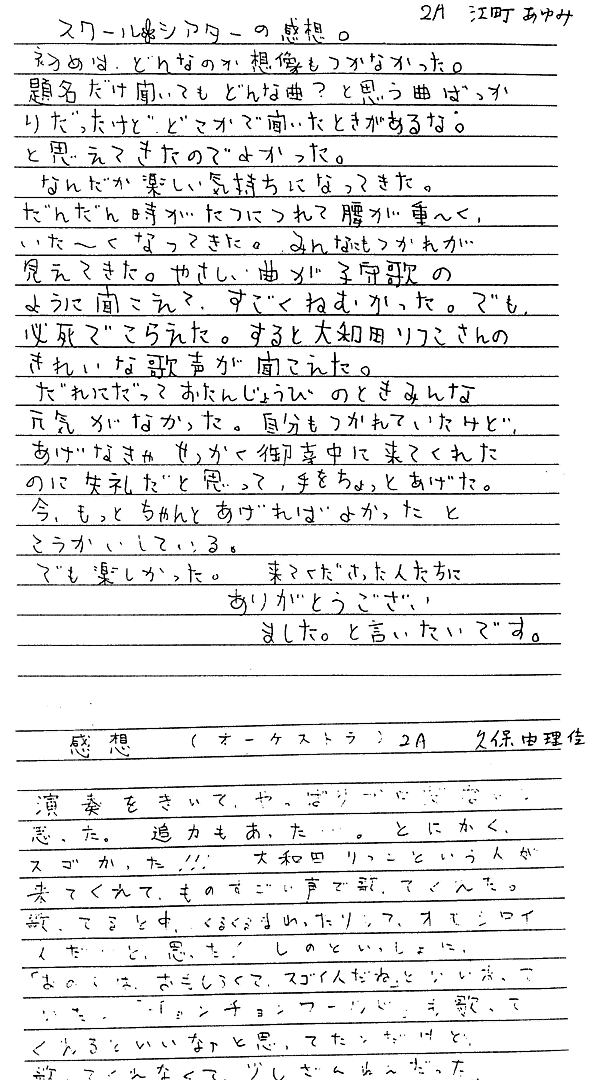 2A 江町 あゆみ
スクール&シアターの感想。
初めは、どんなのか想像もつかなかった。
題名だけ聞いてもどんな曲?と思う曲ばっか
りだったけど、どこかで聞いたときがあるな。
と思えてきたのでよかった。
なんだか楽しい気持ちになってきた。
だんだん時がたつにつれて腰が重〜く、
いた〜くなってきた。みんなにもつかれが
見えてきた。やさしい曲が子守歌の
ように聞こえて、すごくねむかった。でも、
必死でこらえた。すると大和田りつこさんの
きれいな歌声が聞こえた。
だれにだっておたんじょうびのときみんな
元気がなかった。自分もつかれていたけど、
あげなきゃせっかく御幸中に来てくれた
のに失礼だと思って、手をちょっとあげた。
今、もっとちゃんとあげればよかったと
こうかいしている。
でも楽しかった。 来てくださった人たちに
ありがとうござい
ました。と言いたいです。
感想 (オーケストラ) 2A 久保由理佳
演奏をきいて、やっぱり
思った。迫力もあった…。とにかく、
スゴかった!!! 大和田りつこという人が
来てくれて、ものすごい声で歌ってくれた。
歌ってると中、くるくるまわったりして、オモシロイ
人だ…と、思った! しのといっしょに、
「あの人は、おもしろくて、スゴイ人だね」と
も歌って
くれるといいなぁと思ってたんだけど、
歌ってくれなくて、少しざんねんだった。